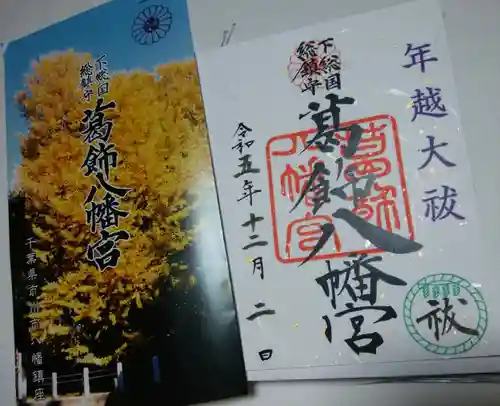 下総国
総鎮守
葛飾八幡宮
千葉県市川市八幡鎮座
年越大祓
下総国
総鎮守
葛飾八幡宮
葛飾
八幡宮
令和五年十二月二日
祓